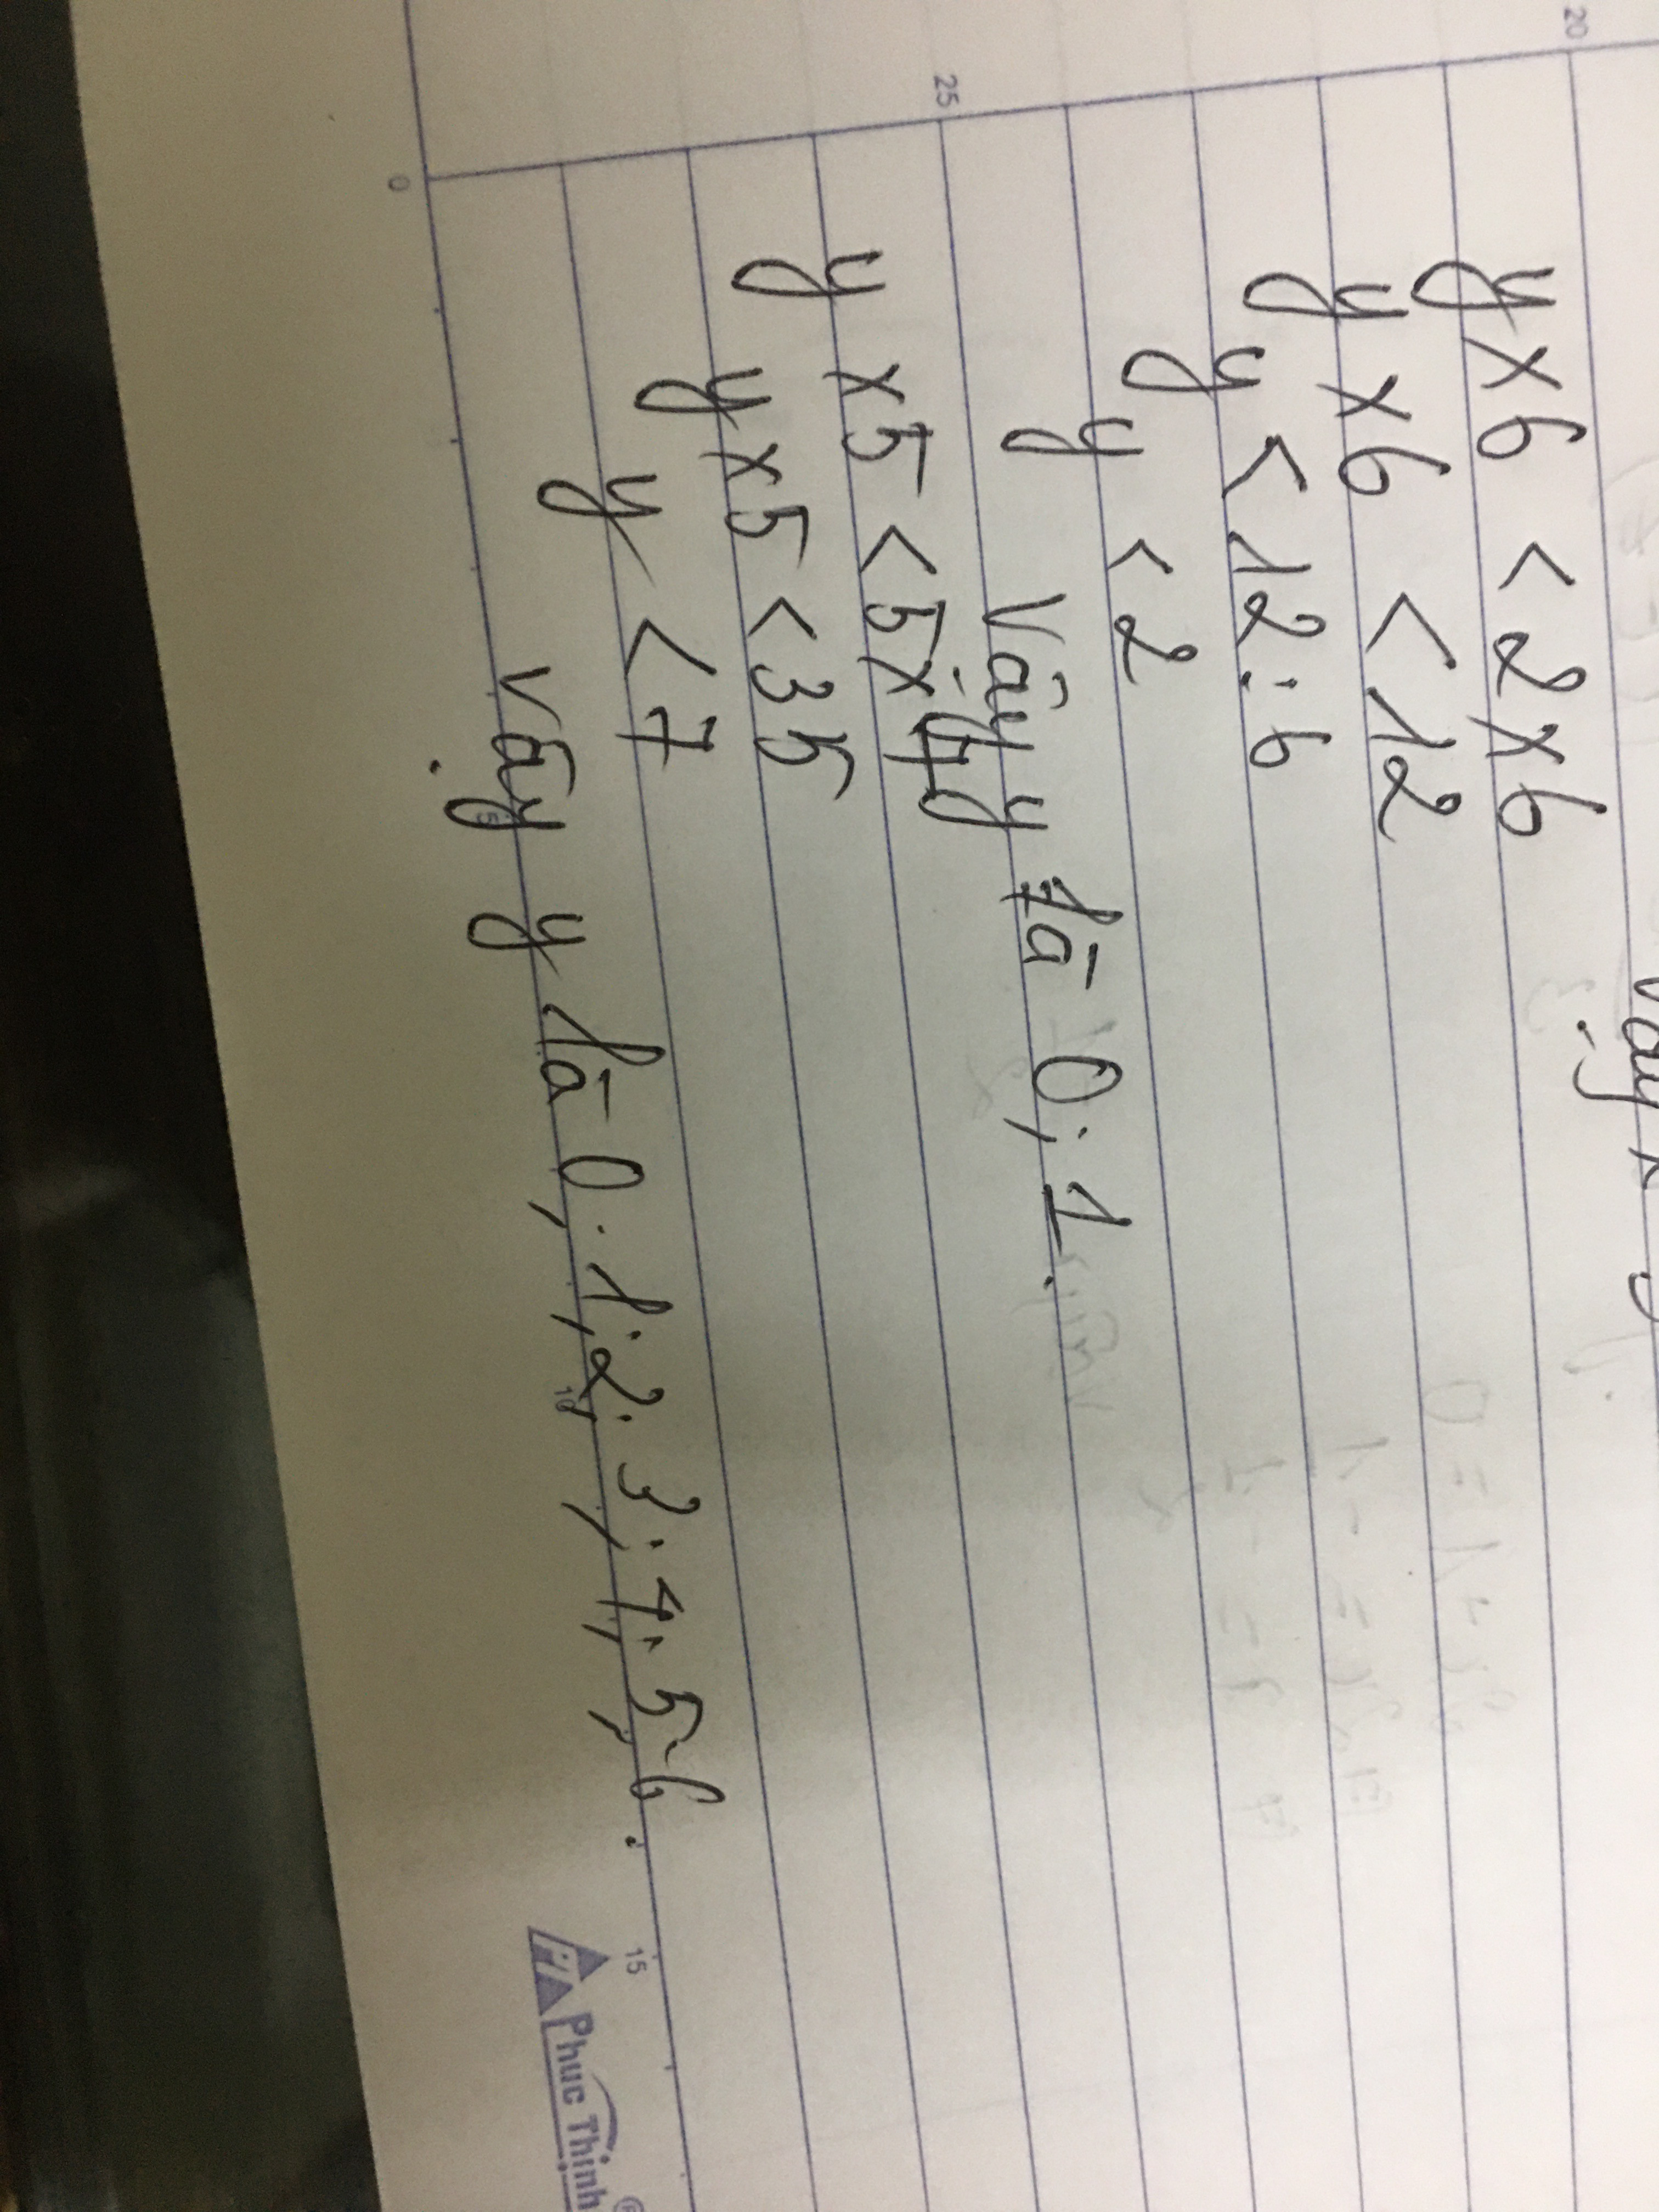 20
y x 6 < 2 x 6
y x 6 < 12
y < 12 : 6
y < 2
Vậy y là 0; 1.
25
y x 5 < 5 x 7
y x 5 < 35
y < 7
Vậy y là 0; 1; 2; 3; 4; 5; 6.
0 5 10 15
Phuc Thinh®